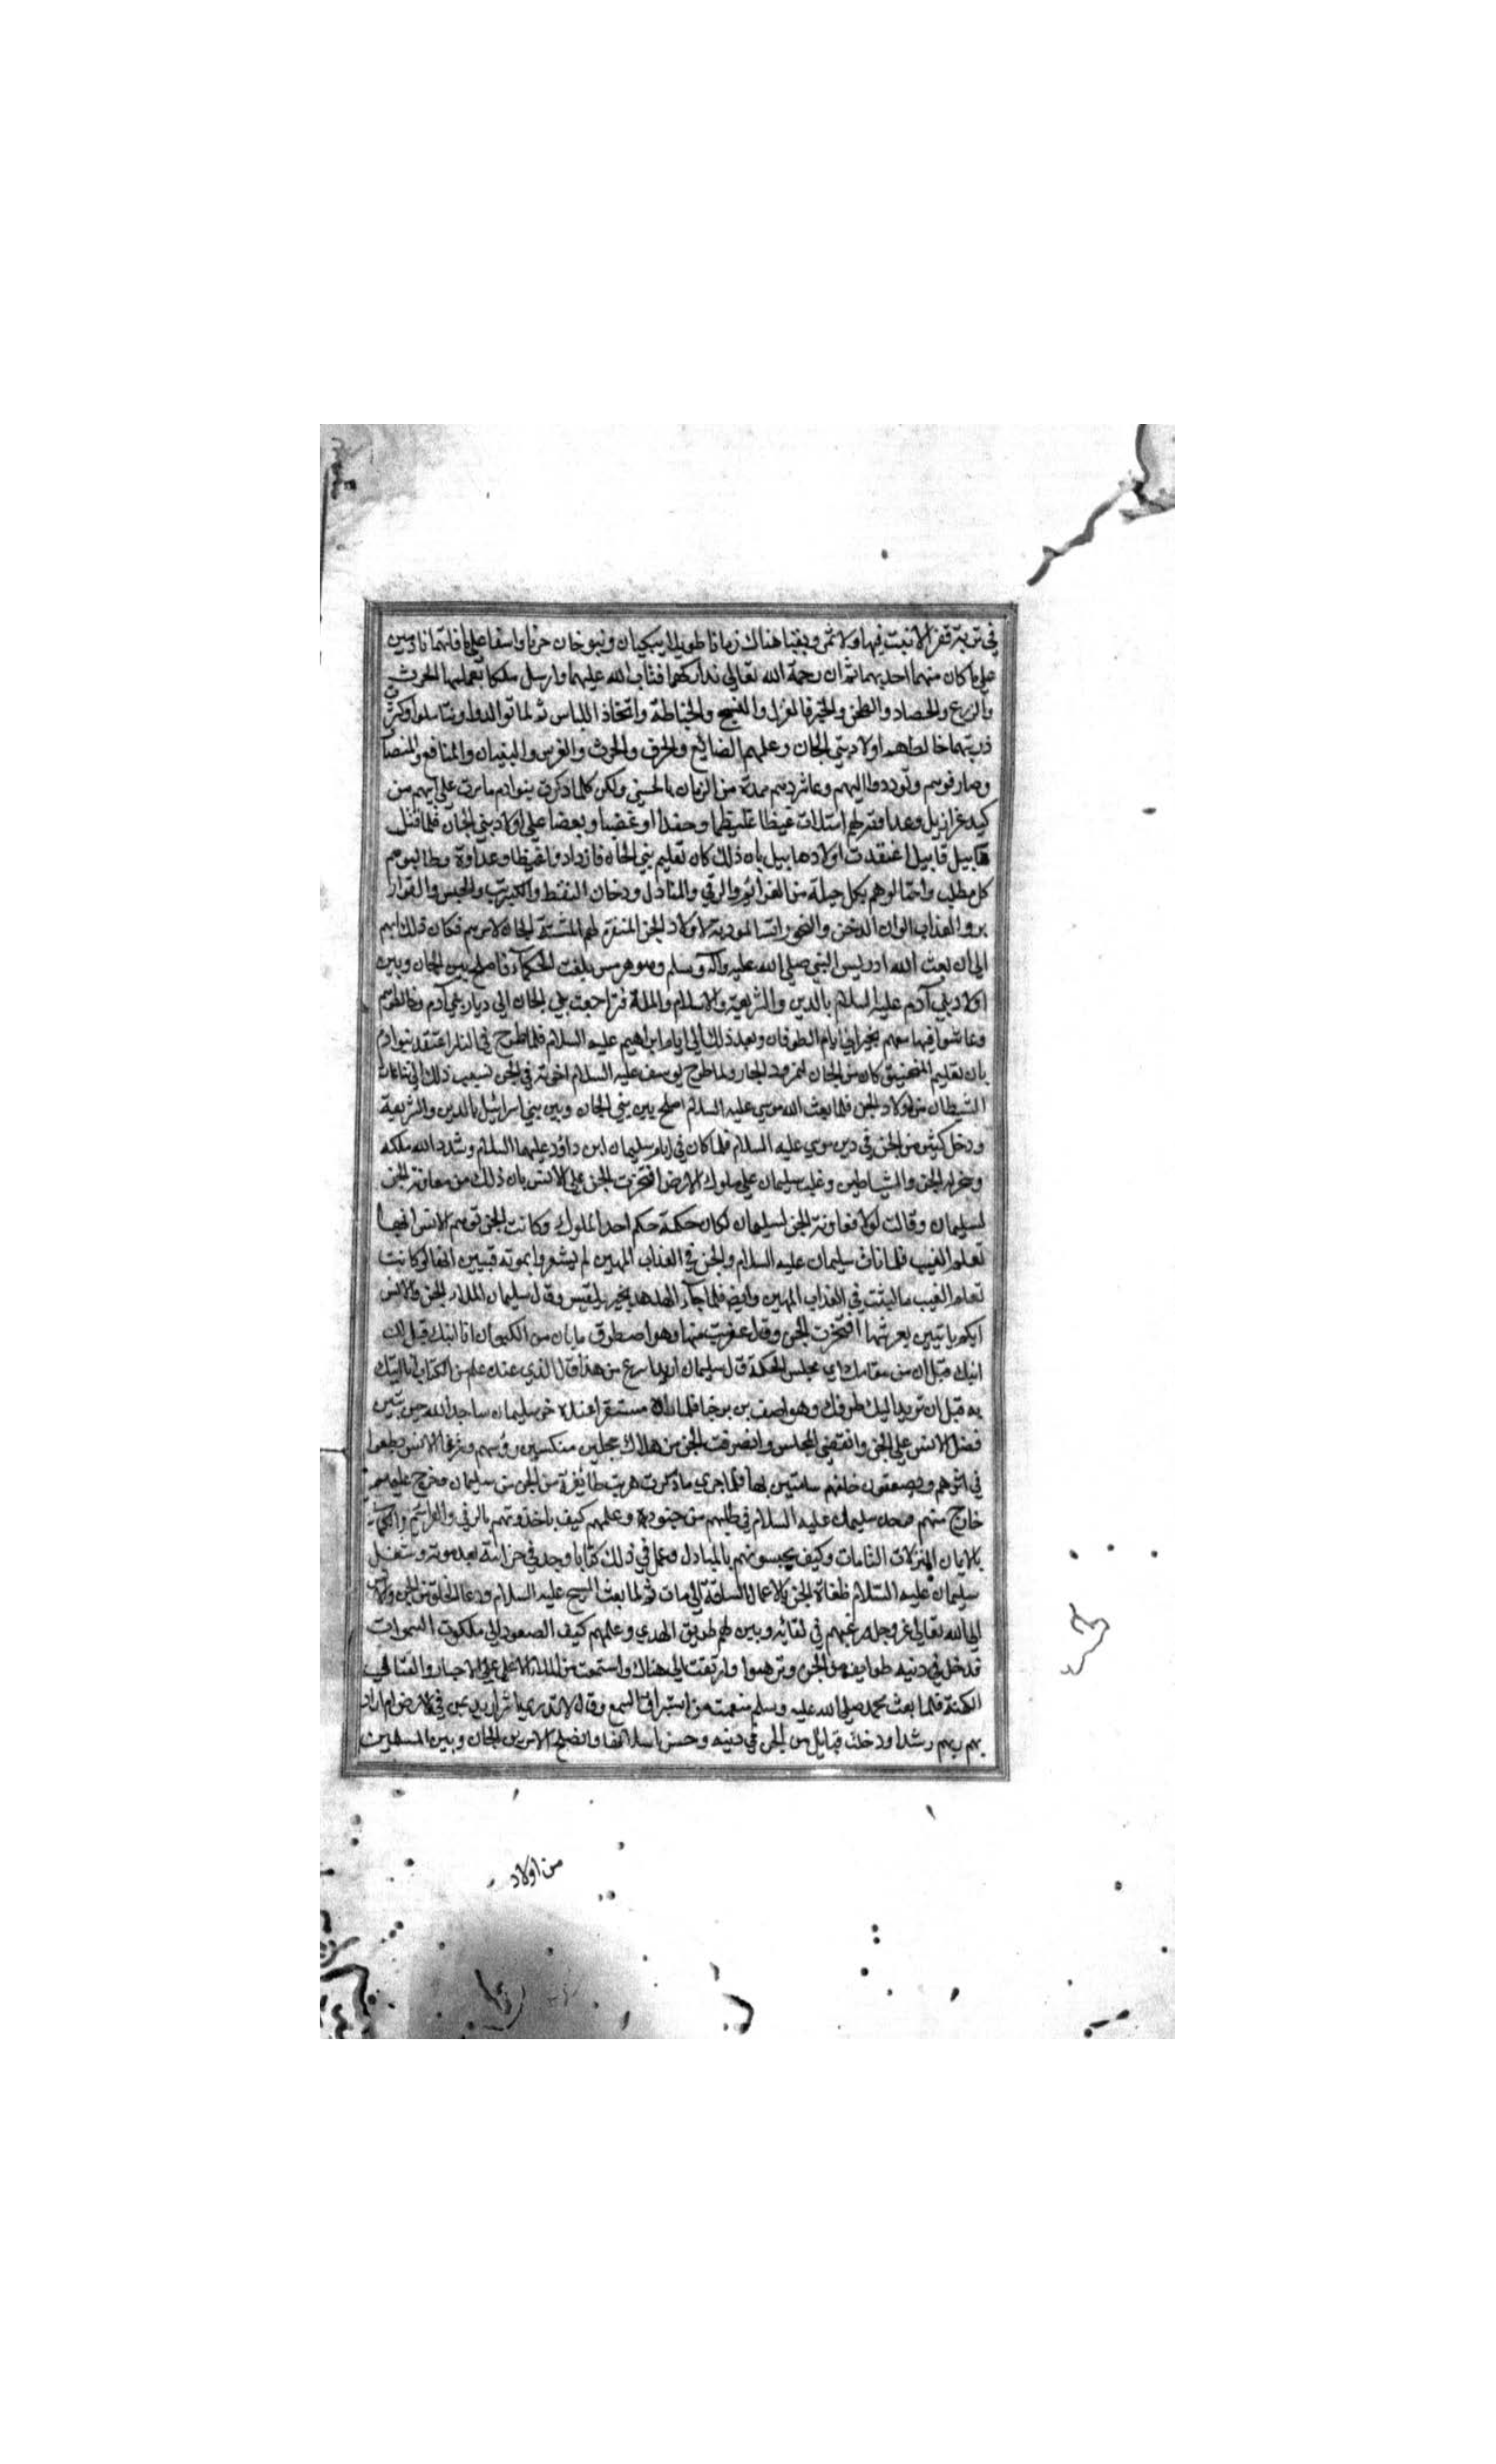 في تربة قفر لا نبت فيها ولا ثمر وبقيا هناك زمانا طويلا يبكيان وينوحان حزنا واسفا على ما فاتهما نادمين
على ما كان منهما احد بهما ثم ان رحمة الله تعالى تداركهما فتاب الله عليهما وارسل ملكا يعلمهما الحرث
والزرع والحصاد والطحن والخبز والغزل والنسج والخياطة واتخاذ اللباس ثم لما توالدوا وتناسلوا وكثرت
ذريتهما خالطهم اولاد بني الجان وعلمهم الصنايع والحرف والحرث والغرس والبنيان والمنافع والمضار
وصارفوهم وتوددوا اليهم وعاشروهم مدة من الزمان بالحسنى ولكن كلما ذكرت بنوادم ما جرى على ابيهم من
كيد عزازيل وعداوته لهم امتلات غيظا وحقدا وغضبا وبغضا على اولاد بني الجان فلما قتل
هابيل قابيل اعتقدت اولاد هابيل بان ذلك كان تعليم بني الجان فازدادوا غيظا وعداوة وطالبوهم
كل مطلب واحتالوهم بكل حيلة من العزائم والرقي والمنادل ودخان النفط والكبريت والحبس والقوارير
والعذاب الوان الدخن والبخورات الموذية لاولاد الجن المنفرة لهم المشتتة لامرهم فكان ذلك دابهم
الى ان بعث الله ادريس النبي صلى الله عليه وآله وسلم وهو هرمس بلغت الحكماء فاصلح بين الجان وبين
اولاد بني آدم عليه السلام بالدين والشريعة والاسلام والملة فتراجعت بني الجان الى ديار بني آدم وخالطوهم
وعاشوا فيها معهم بخير الى ايام الطوفان وبعد ذلك الى ايام ابراهيم عليه السلام فلما طرح في النار اعتقد بنوادم
بان تعليم المنجنيق كان من الجان لنمرود الجبار ولما طرح يوسف عليه السلام اخوته في الجب نسب ذلك الى نزغات
الشيطان من اولاد الجن فلما بعث الله موسى عليه السلام اصلح بين بني الجان وبين بني اسرائيل بالدين والشريعة
ودخل كثير من الجن في دين موسى عليه السلام فلما كان في ايام سليمان ابن داود عليهما السلام وشدد الله ملكه
وسخر له الجن والشياطين وغلب سليمان على ملوك الارض افتخرت الجن على الانس بان ذلك من معاونة الجن
لسليمان وقالت لولا معاونة الجن لسليمان لكان حكمه حكم احد الملوك وكانت الجن توهم الانس انها
تعلم الغيب فلما مات سليمان عليه السلام والجن في العذاب المهين لم يشعروا بموته فتبين انها لو كانت
تعلم الغيب ما لبثت في العذاب المهين وايضا فلما جاء الهدهد بخبر بلقيس وقال سليمان لملاء الجن والانس
ايكم ياتيني بعرشها افتخرت الجن وقال عفريت منها وهو اصطرق مايان من الكيوان انا اتيك قبل ان
اتيك قبل ان من مقامك اي مجلس الحكمة قال سليمان اريد اسرع من هذا قال الذي عنده علم من الكتاب انا اتيك
به قبل ان يرتد اليك طرفك وهو اصف بن برخيا فلما راه مستقرا عنده خر سليمان ساجدا لله حين تبين
فضل الانس على الجن وانقضى المجلس وانصرفت الجن من هناك خجلين منكسين رؤسهم وغوغا الانس يطعطعوا
في اثرهم ويصفقون خلفهم شامتين بها فلما جرى ما ذكرت هربت طائفة من الجن من سليمان وخرج عليه منهم
خارج منهم فوجه سليمان عليه السلام في طلبهم من جنوده وعلمهم كيف ياخذونهم بالرقي والعزائم والكلمات
بالايات المنزلات التامات وكيف يحبسونهم بالمنادل وعمل في ذلك كتابا وجد في خزانته بعد موته وشغل
سليمان عليه السلام طغاة الجن بالاعمال الشاقة الى ان مات ثم لما بعث المسيح عليه السلام ودعا الخلق من الجن والانس
الى الله تعالى عز وجل ورغبهم في لقائه وبين لهم طريق الهدى وعلمهم كيف الصعود الى ملكوت السموات
فدخل في دينه طوايف من الجن وترهبوا وارتقت الى هناك واستمعت من الملاء الاعلى الاخبار والقتا الى
الكهنة فلما بعث محمد صلى الله عليه وسلم منعت من استراق السمع وقالت لا ندري اشر اريد بمن في الارض ام اراد
بهم ربهم رشدا ودخلت قبايل من الجن في دينه وحسن اسلامها وانصلح الامر بين الجان وبين المسلمين
من اولاد